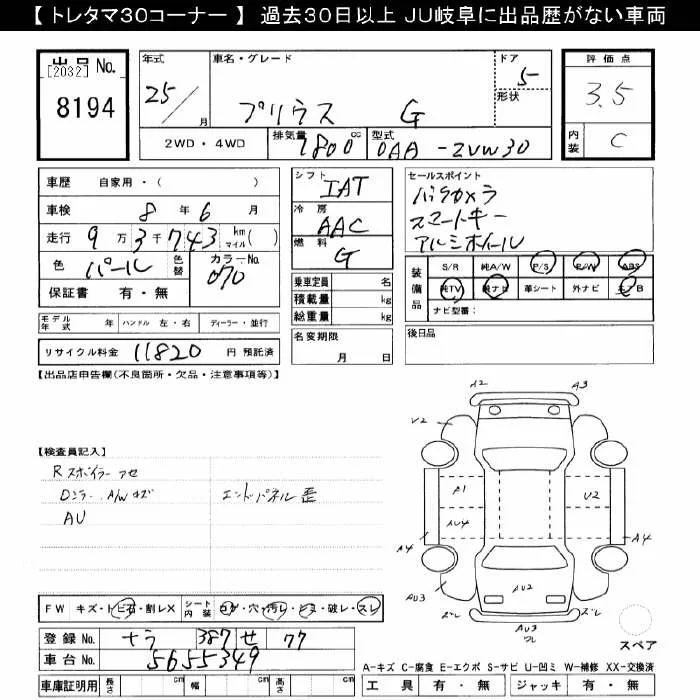 【 トレタマ30コーナー 】 過去30日以上 JU岐阜に出品歴がない車両
出品 No.
[2032]
8194
年式 25/ 月
車名・グレード
プリウス G
ドア 5
形状
評価点
3.5
内装 C
2WD・4WD
排気量 1800 cc
型式 DAA-ZVW30
車歴 自家用・( )
車検 8 年 6 月
走行 9 万 3 千 743 km マイル ( )
色 パール 色替 カラーNo. 070
保証書 有・無
シフト IAT
冷房 AAC
燃料 G
乗車定員 名
積載量 kg
総重量 kg
名変期限
月 日
セールスポイント
バックカメラ
スマートキー
アルミホイール
装備品
S/R 純A/W P/S P/W ABS
純TV 純ナビ 革シート 外ナビ エアB
ナビ型番:
後日品
モデル年式 年 ハンドル 左・右 ディーラー・並行
リサイクル料金 11820 円 預託済
【出品店申告欄(不良箇所・欠品・注意事項等)】
【検査員記入】
R スポイラー アセ
Dミラー A/W キズ
AU
エンドパネル 歪
A2 A3
V2
A1 U2
AU4
A4 A4
AU3 AU2
ズレ AU3 ズレ
ワレ
スペア
FW キズ・トビ石・割レX シート内装 コゲ・穴・汚レ・シミ・破レ・スレ
登録 No. ナラ 387 せ 77
車台 No. 5655349
車庫証明用 長さ cm 幅 cm 高さ cm
A-キズ C-腐食 E-エクボ S-サビ U-凹ミ W-補修 XX-交換済
工具 有・無 ジャッキ 有・無